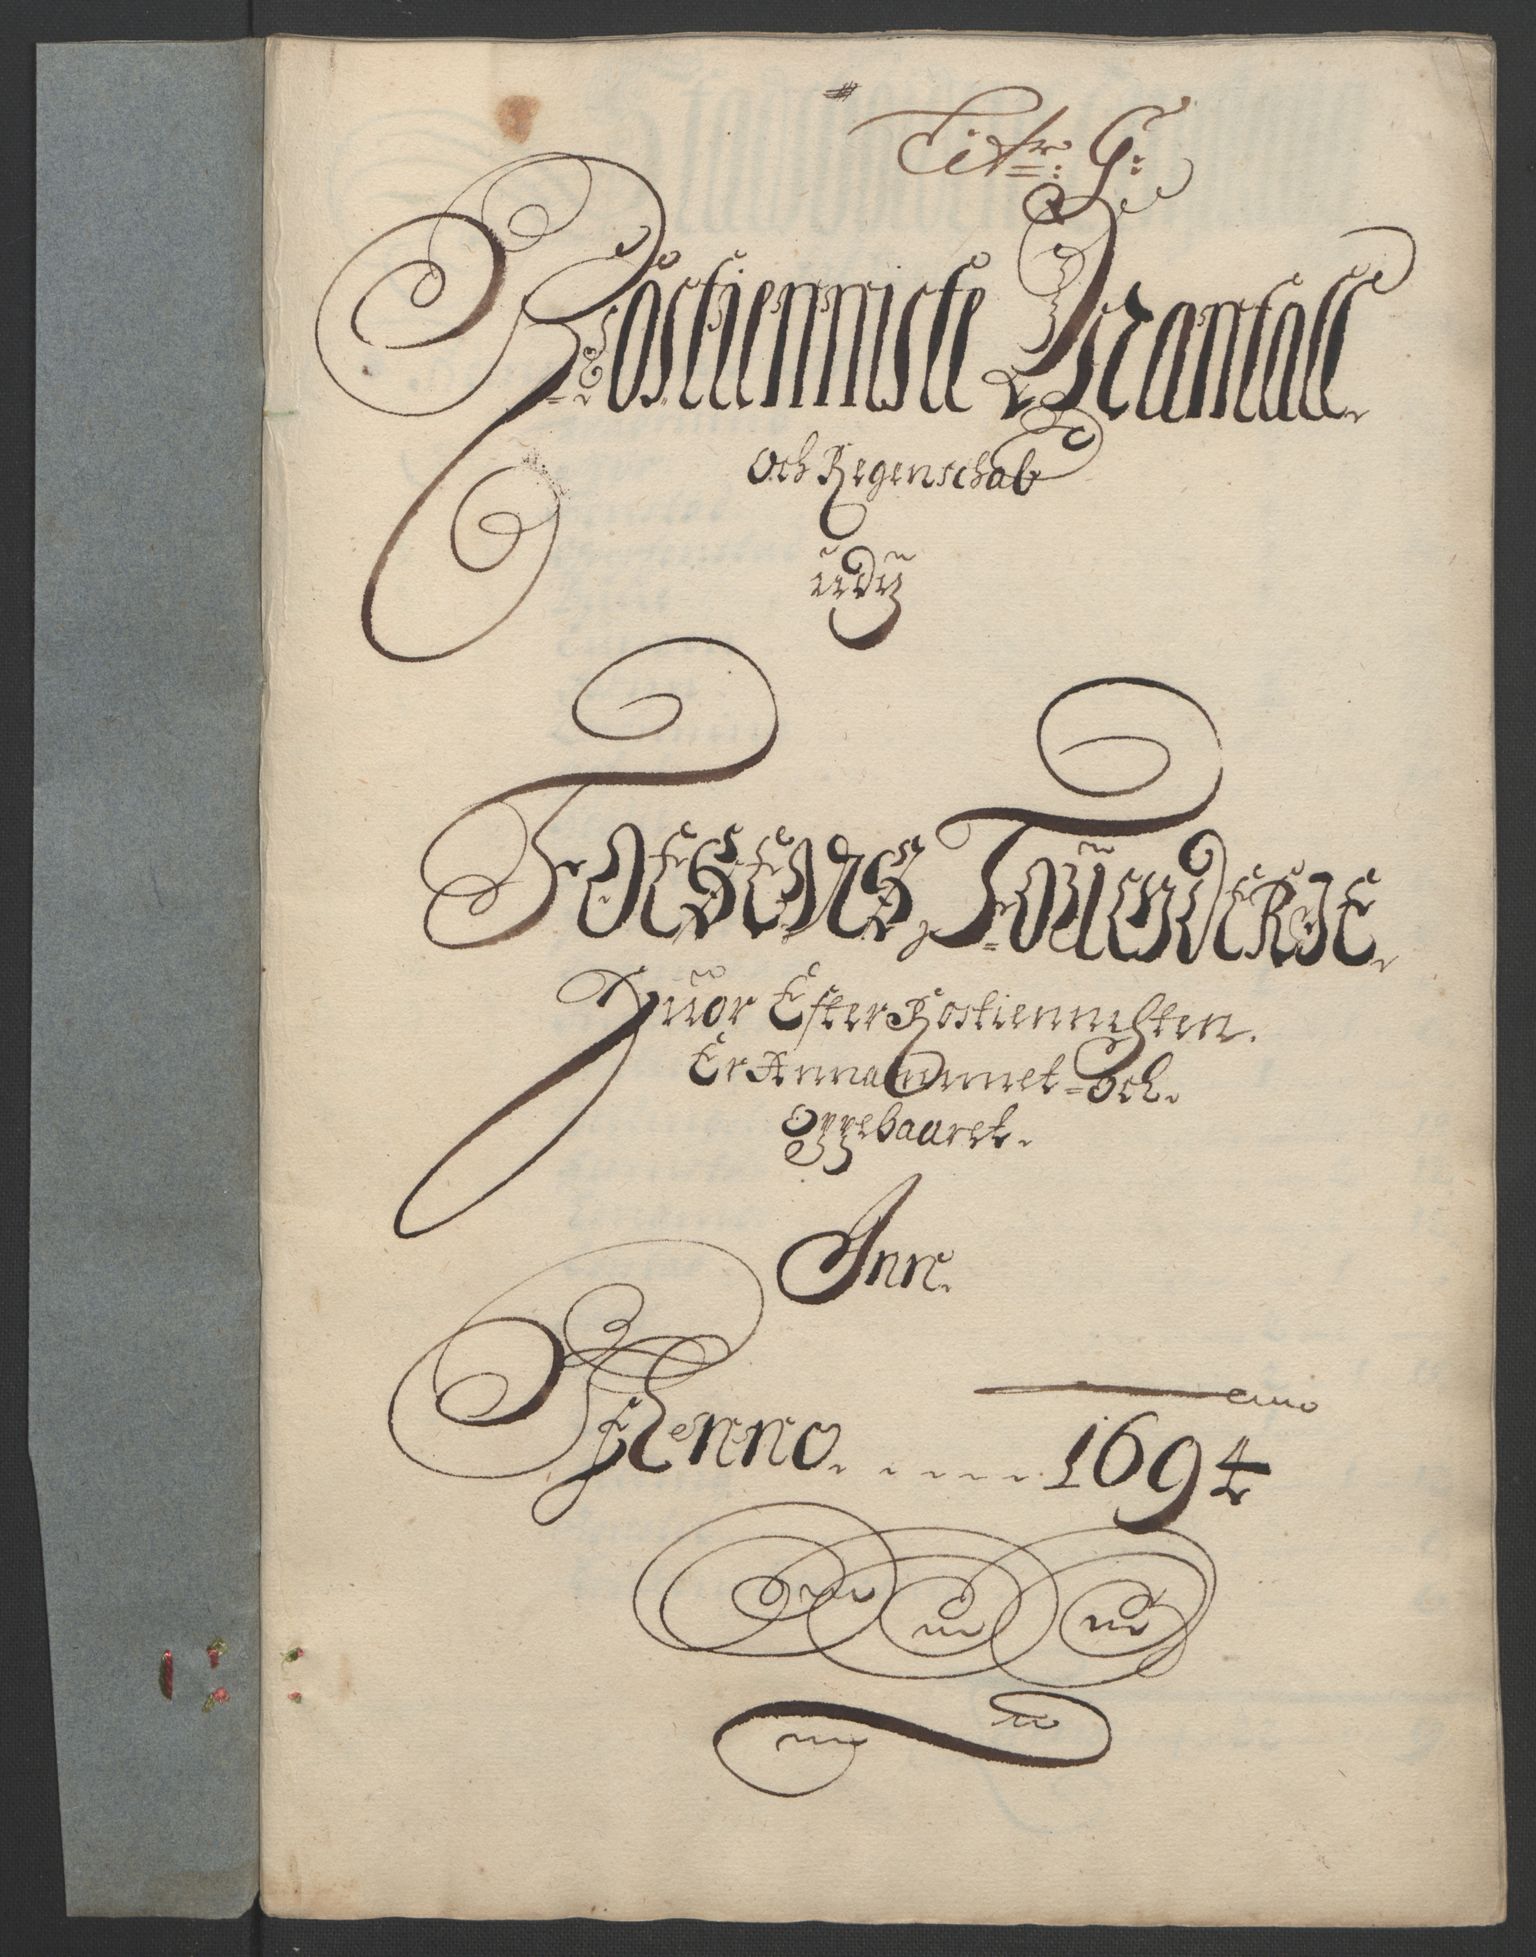 Litr: G:
Rostienniste Mantall
och Regenschab
udy
Fosens Fougderie
Huor Efter Rostiennisten
Er Annammet och
oppebaaret.
Pro
Anno 1694